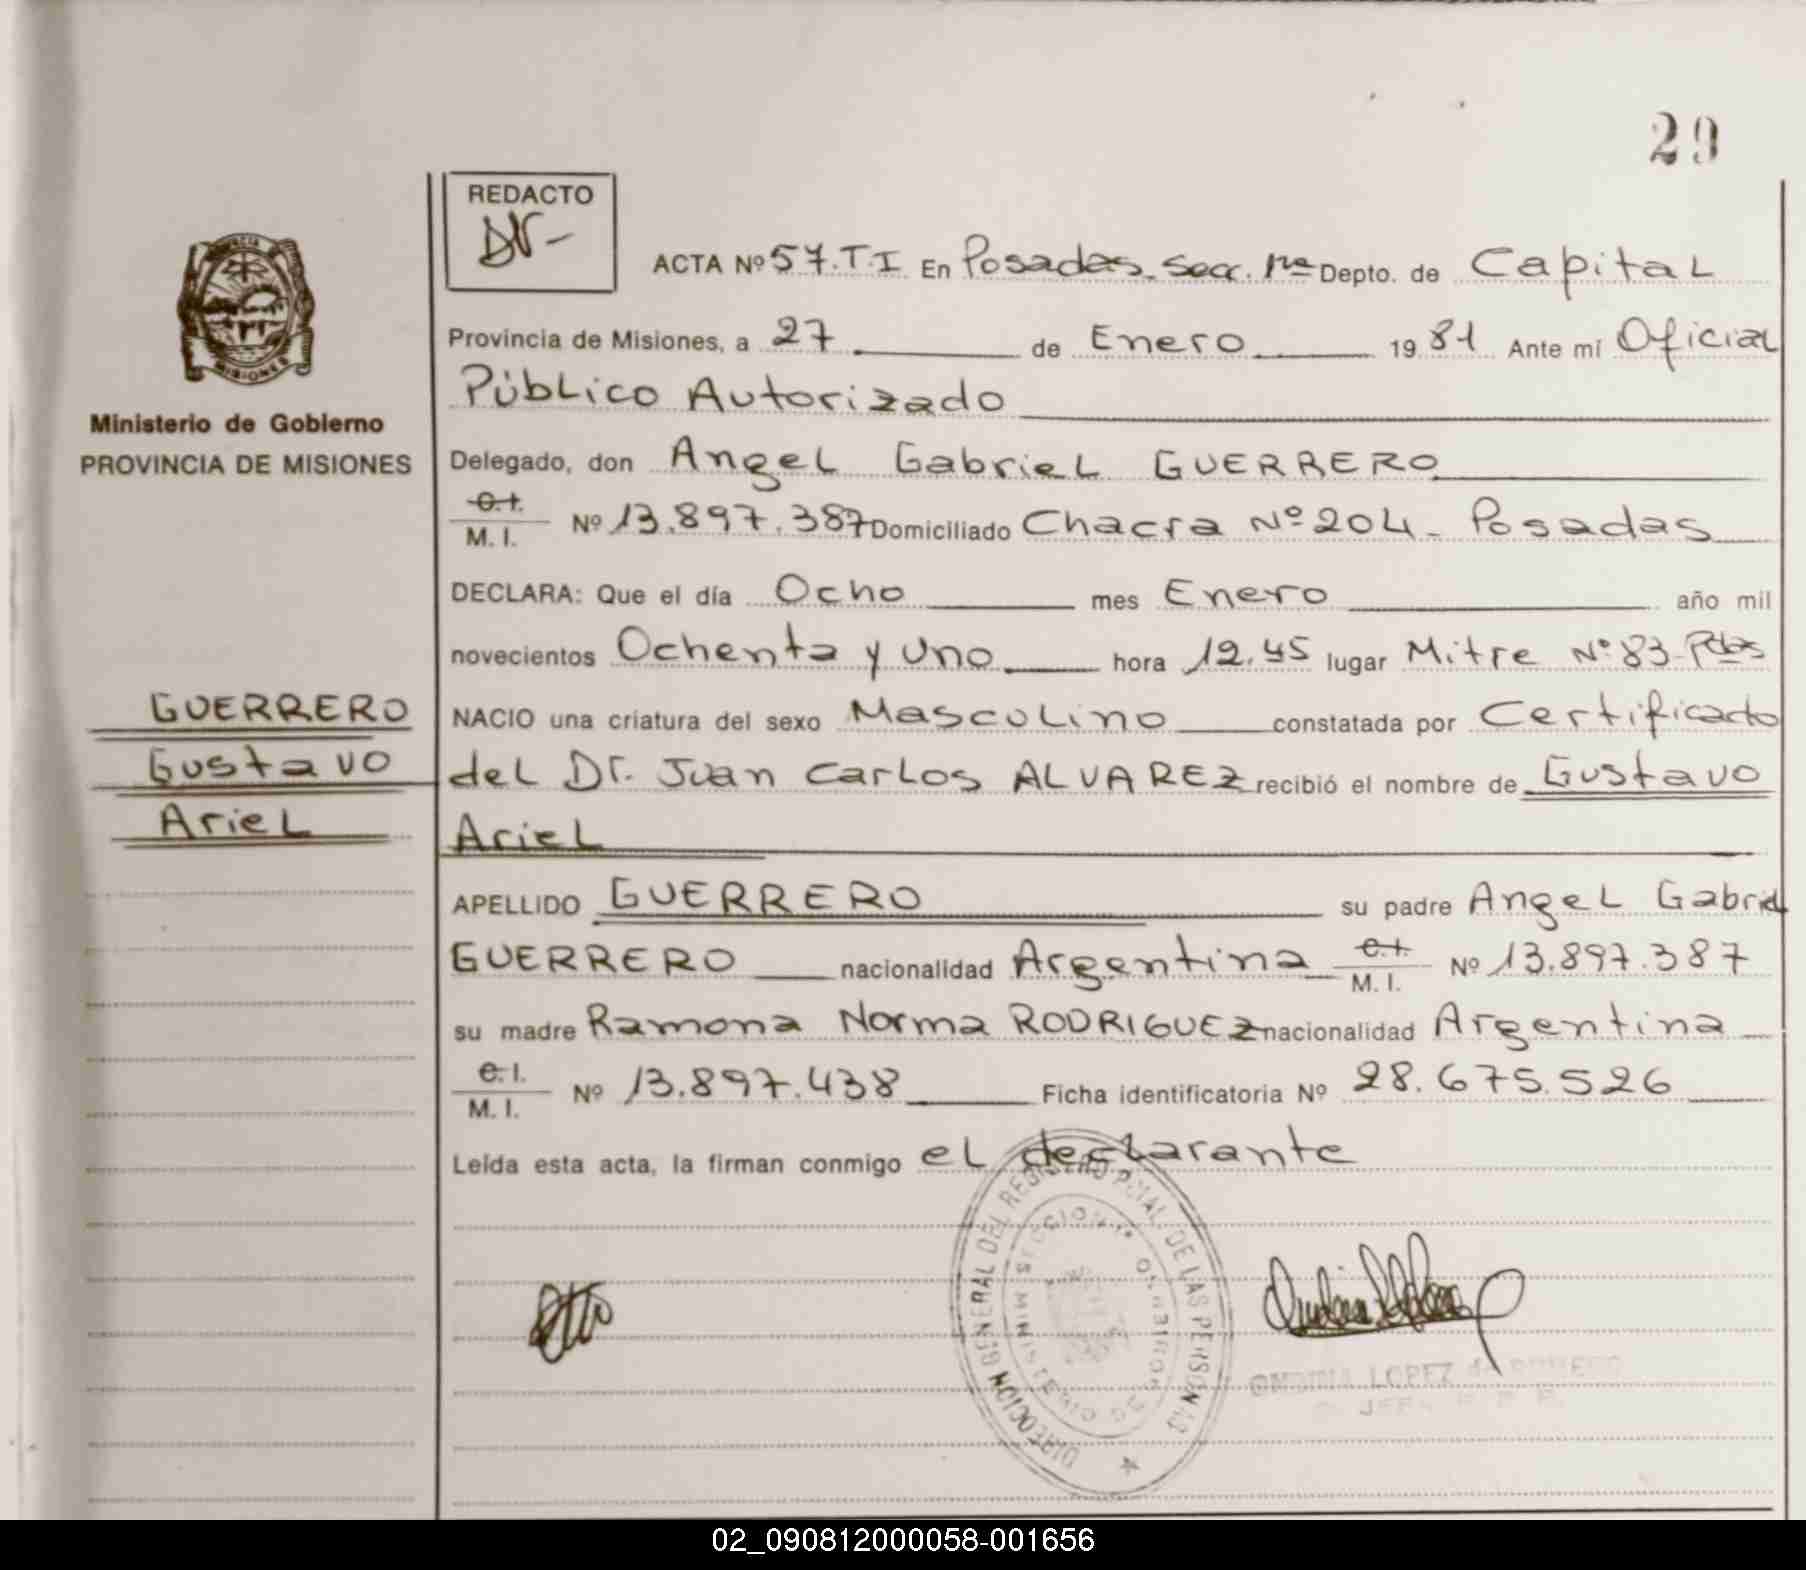 29
REDACTO
ACTA Nº 57.T.I En Posadas. Secc. 1ra Depto. de Capital
Provincia de Misiones, a 27 de Enero 1981 Ante mí Oficial
Público Autorizado
MISIONES
Ministerio de Gobierno
PROVINCIA DE MISIONES
Delegado, don Angel Gabriel GUERRERO
M. I. Nº 13.897.387 Domiciliado Chacra Nº 204 - Posadas
DECLARA: Que el día Ocho mes Enero año mil
novecientos Ochenta y Uno hora 12.45 lugar Mitre Nº 83-Pdas
GUERRERO
Gustavo
Ariel
NACIO una criatura del sexo Masculino constatada por Certificado
del Dr. Juan Carlos ALVAREZ recibió el nombre de Gustavo
Ariel
APELLIDO GUERRERO su padre Angel Gabriel
GUERRERO nacionalidad Argentina M. I. Nº 13.897.387
su madre Ramona Norma RODRIGUEZ nacionalidad Argentina
M. I. Nº 13.897.438 Ficha identificatoria Nº 28.675.526
Leída esta acta, la firman conmigo el declarante
DIRECCION GENERAL DEL REGISTRO DE LAS PERSONAS
SECCION 1ª
LOPEZ de
02_090812000058-001656